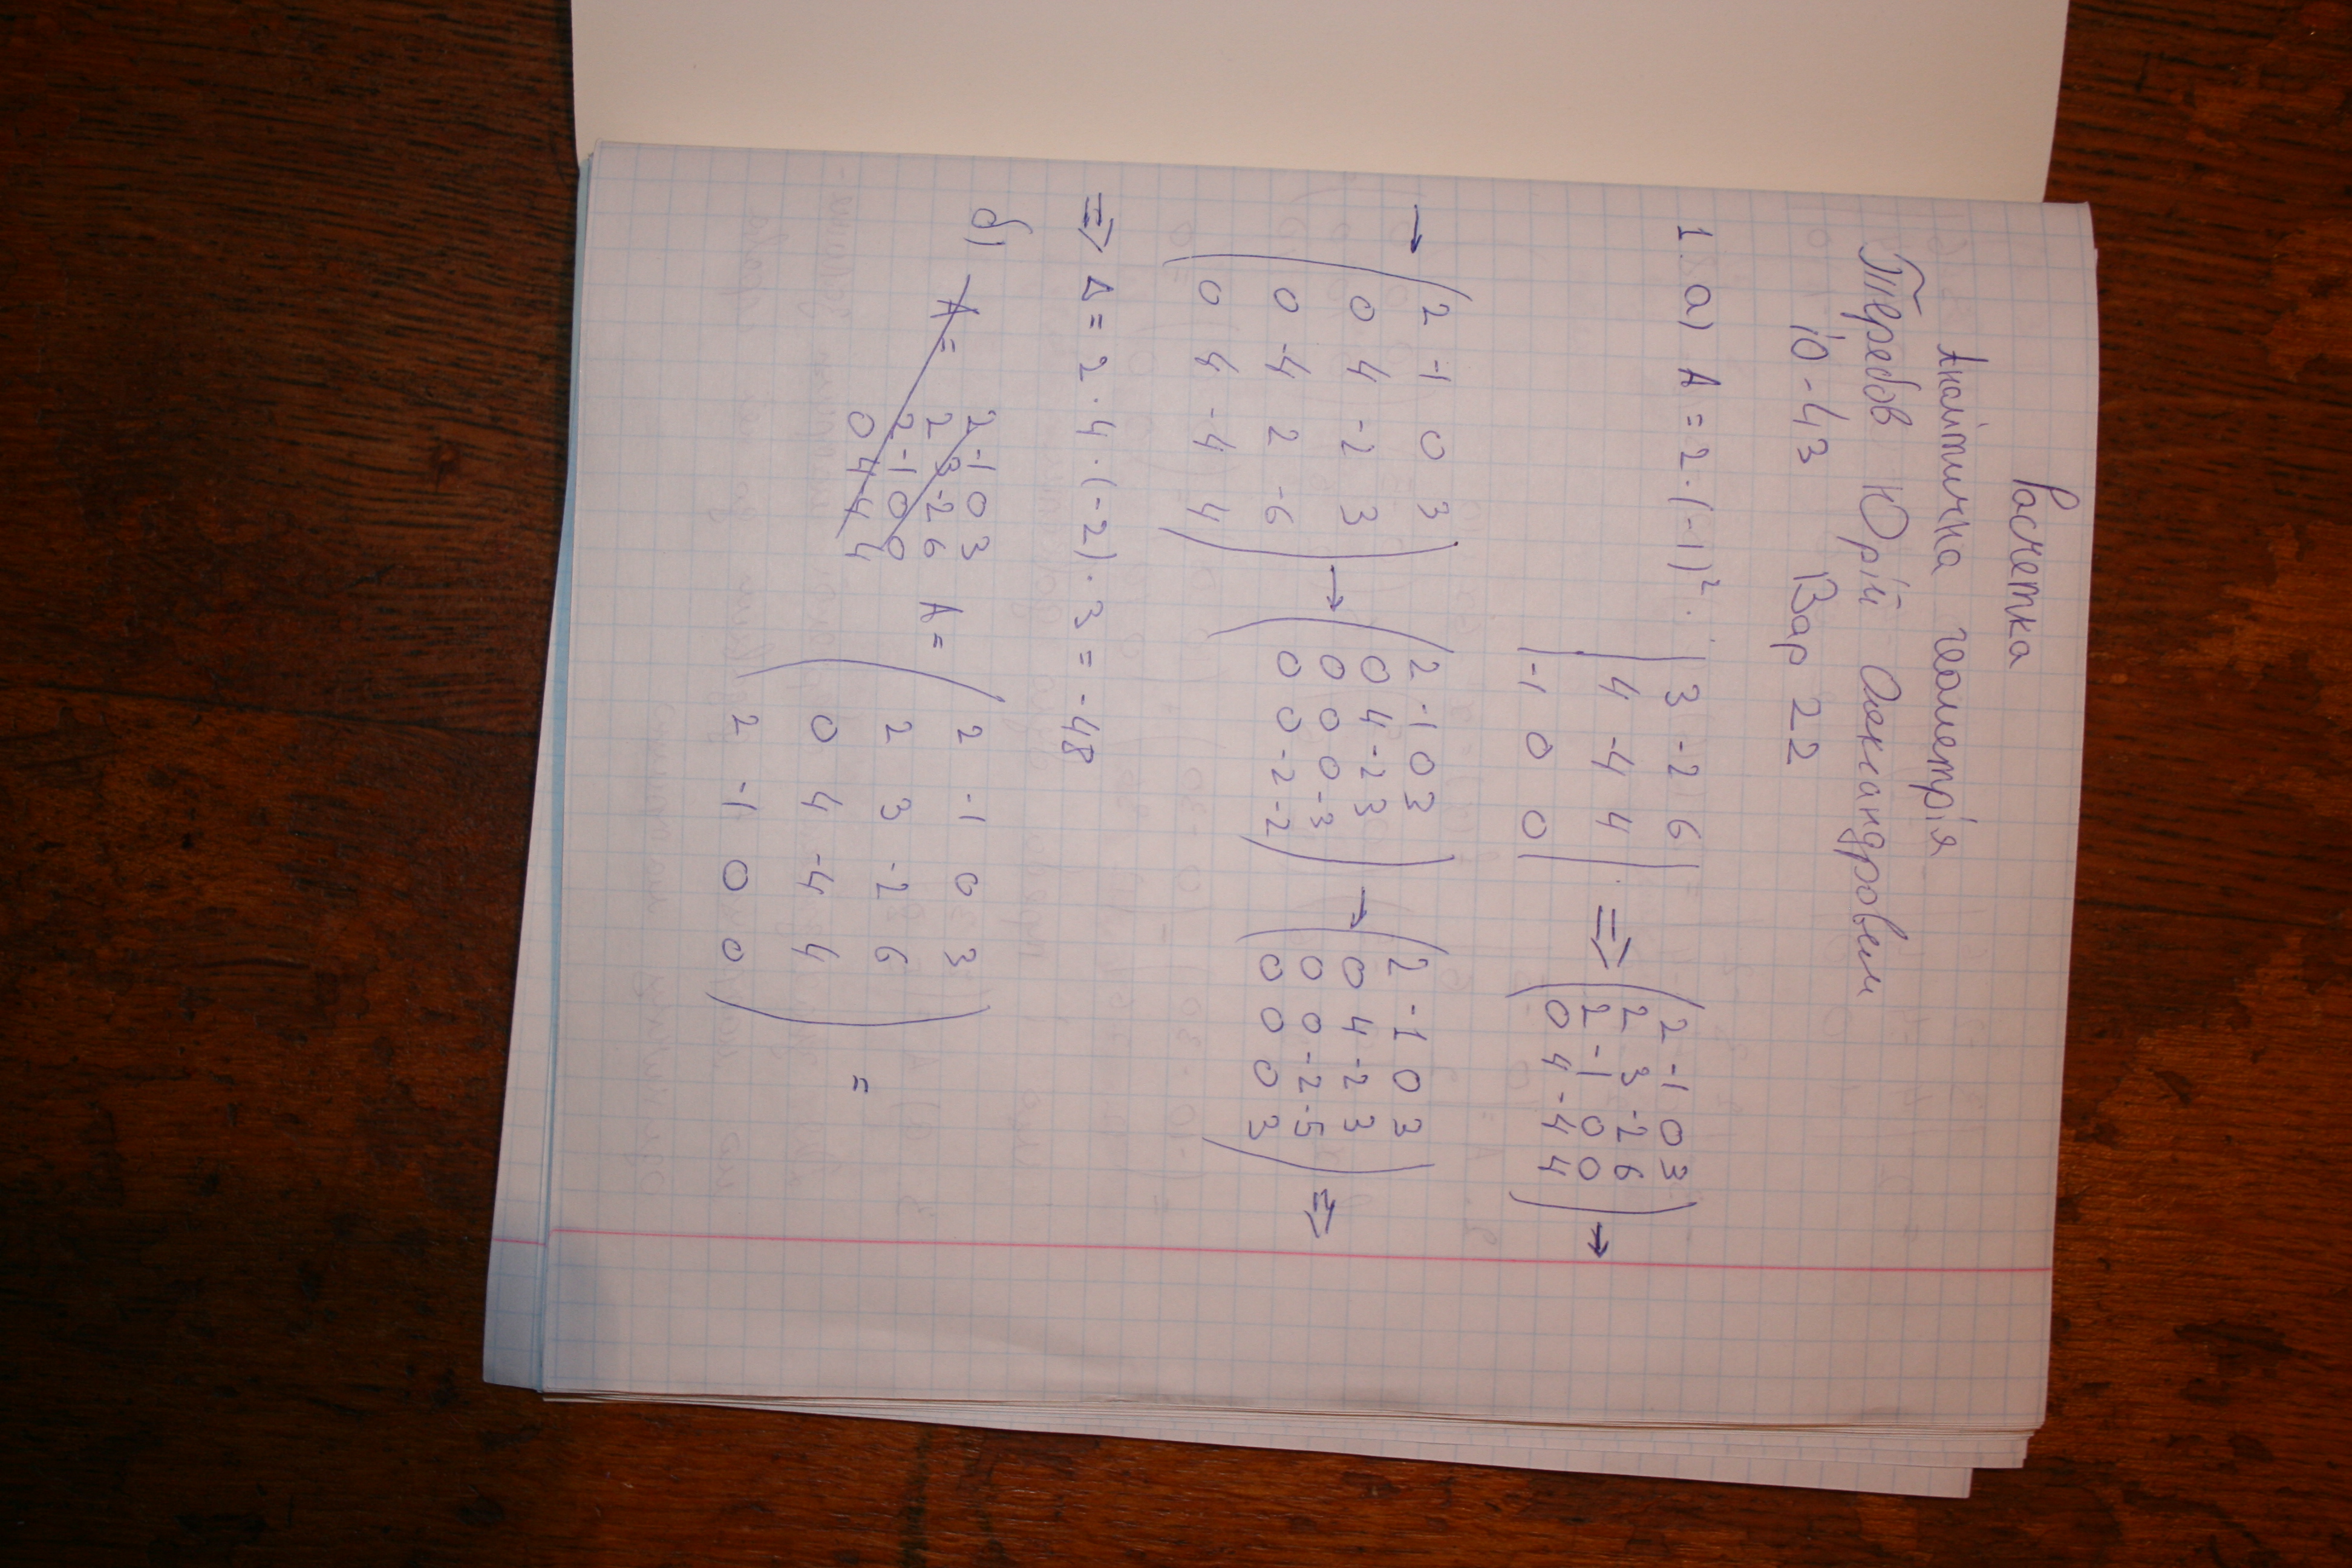 Расчетка
Аналітична геометрія
Теребов Юрій Олександрович
ІО-43 Вар 22
1. а) А = 2·(-1)²·
|3 -2 6|
|4 -4 4|
|-1 0 0|
=>
(2 -1 0 3
2 3 -2 6
2 -1 0 0
0 4 -4 4)
→
→
(2 -1 0 3
0 4 -2 3
0 -4 2 -6
0 4 -4 4)
→
(2 -1 0 3
0 4 -2 3
0 0 0 -3
0 0 -2 -2)
→
(2 -1 0 3
0 4 -2 3
0 0 -2 -5
0 0 0 3)
=>
=> Δ = 2 · 4 · (-2) · 3 = -48
б)
А =
2 -1 0 3
2 3 -2 6
2 -1 0 0
0 4 -4 4
А =
(2 -1 0 3
2 3 -2 6
0 4 -4 4
2 -1 0 0)
=